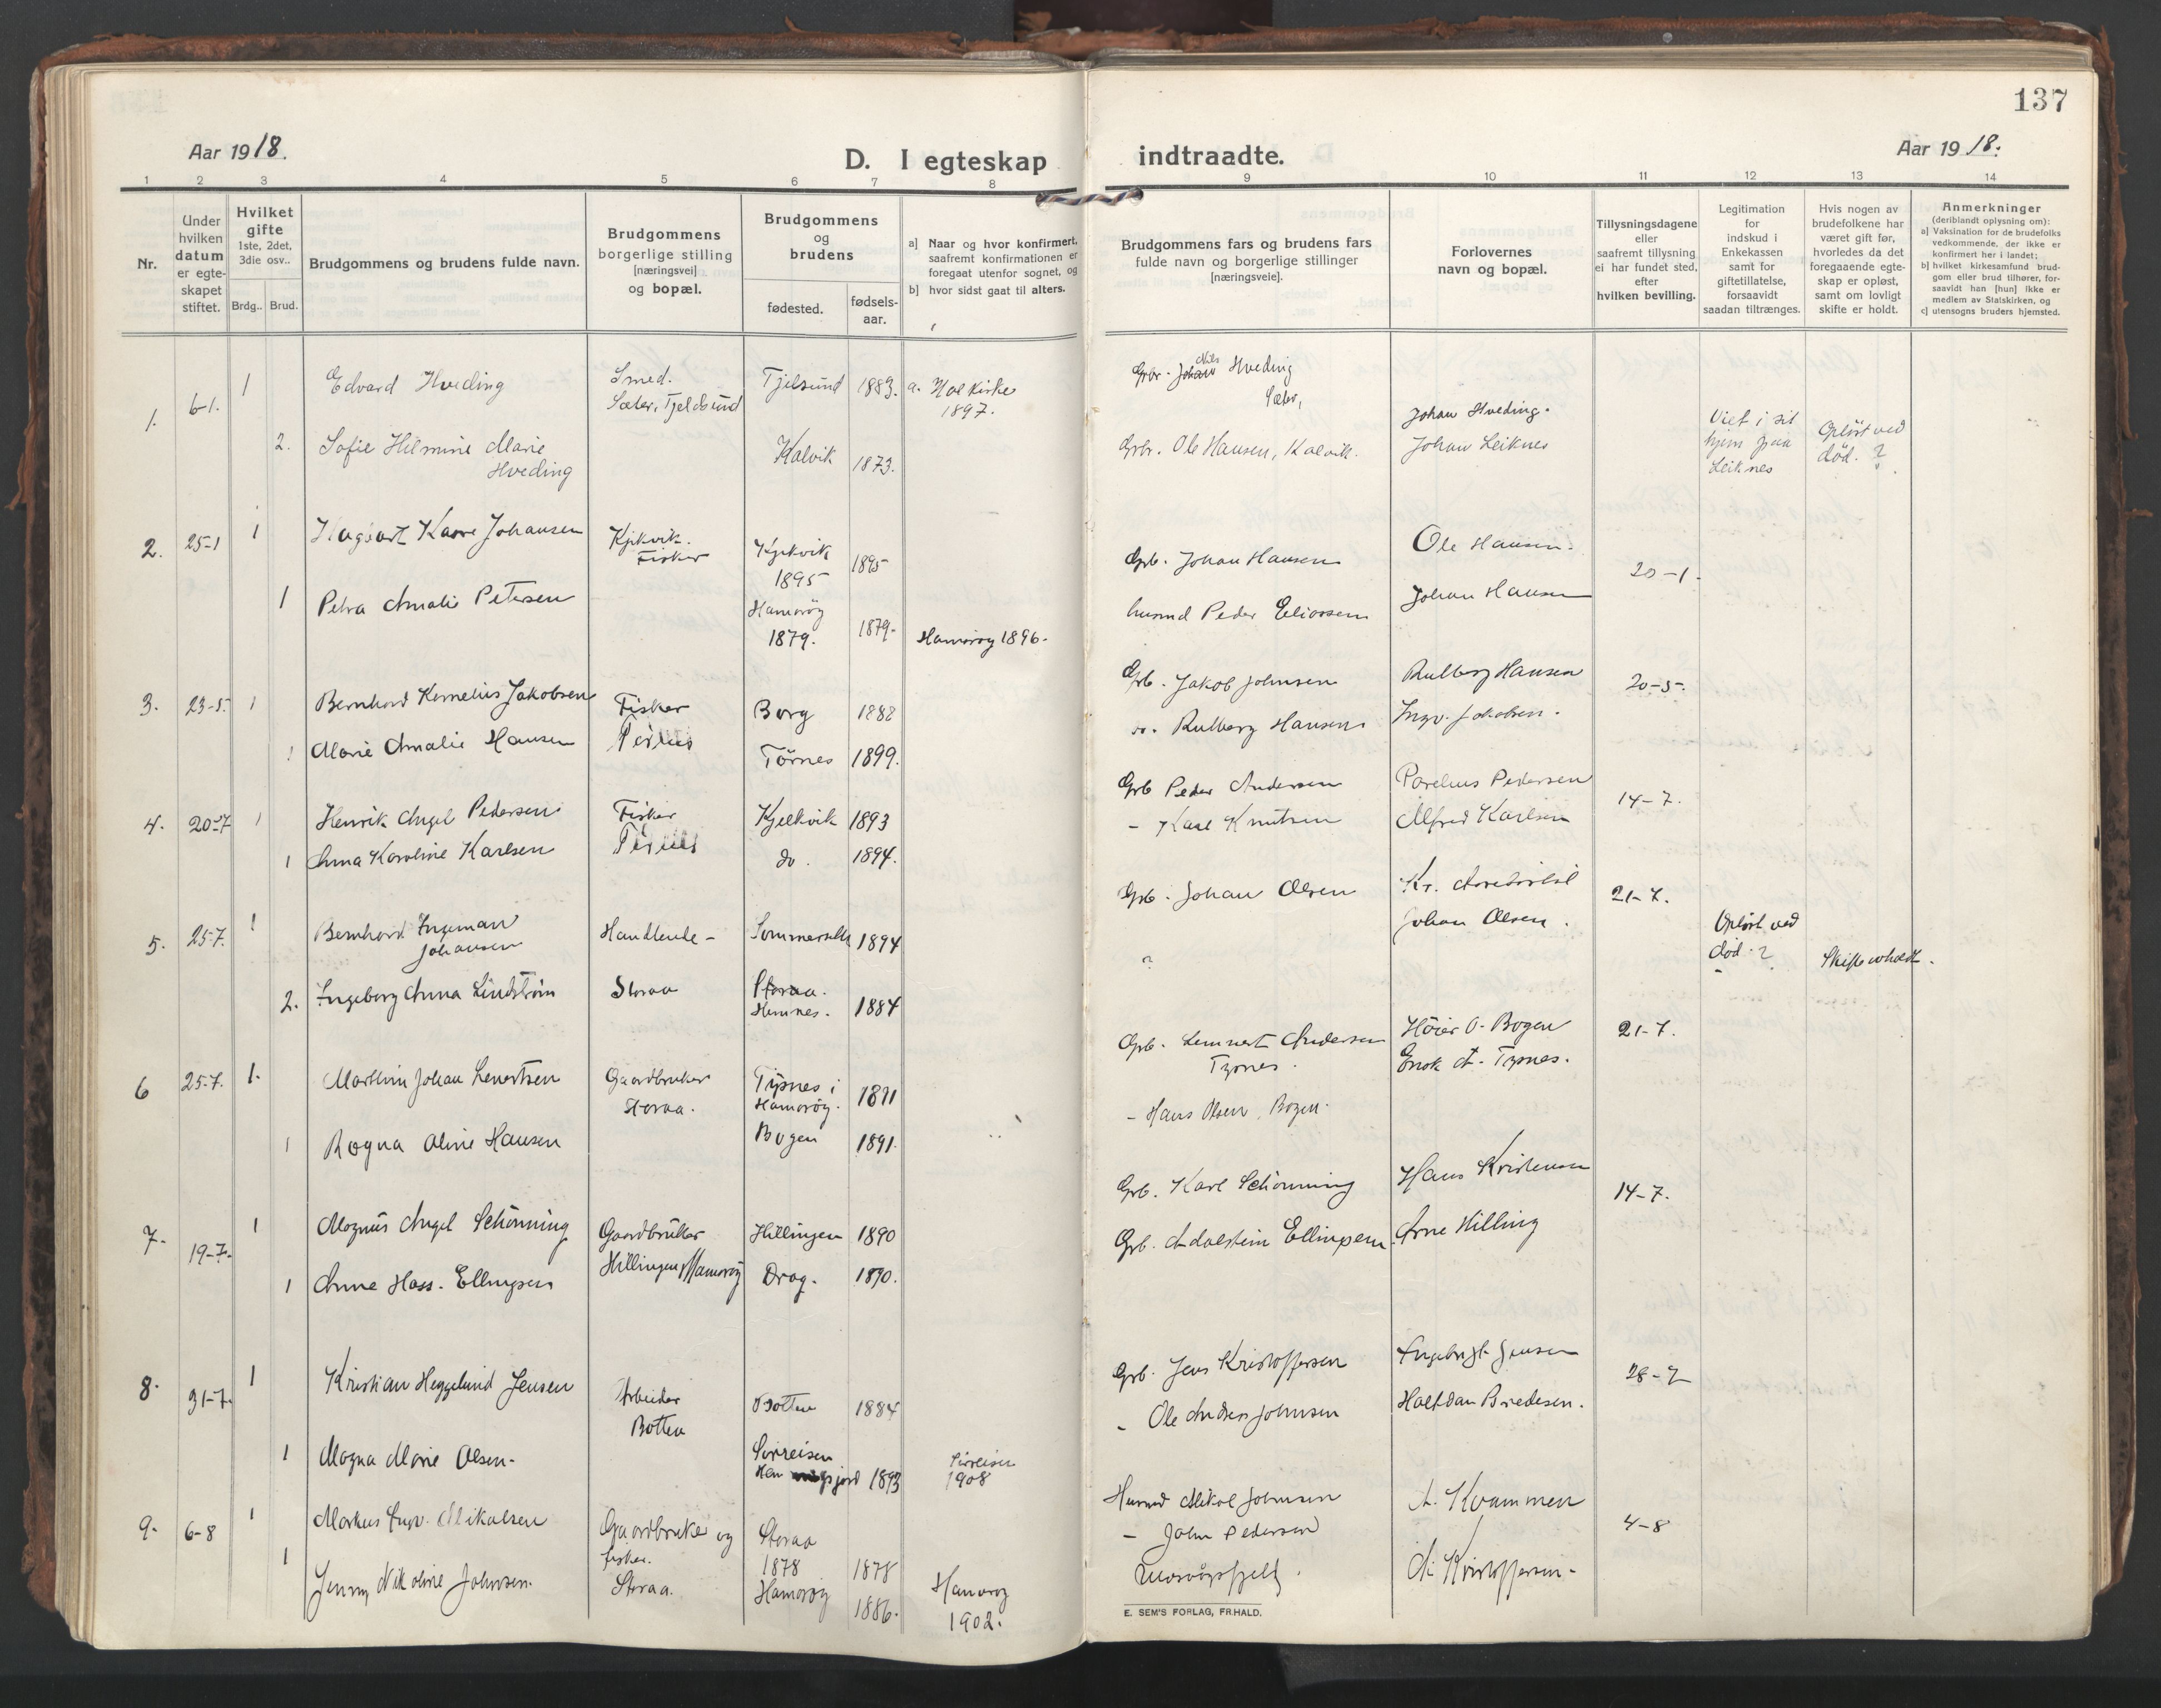 137
Aar 1918.
D. I egteskap
indtraadte.
Aar 1918.
1 2 3 4 5 6 7 8 9 10 11 12 13 14
Nr.
Under hvilken datum er egte-skapet stiftet.
Hvilket gifte
1ste, 2det, 3die osv..
Brdg.. Brud.
Brudgommens og brudens fulde navn.
Brudgommens
borgerlige stilling
[næringsvei]
og bopæl.
Brudgommens
og
brudens
fødested.
fødsels-aar.
a] Naar og hvor konfirmert,
saafremt konfirmationen er
foregaat utenfor sognet, og
b] hvor sidst gaat til alters.
Brudgommens fars og brudens fars
fulde navn og borgerlige stillinger
[næringsveie].
Forlovernes
navn og bopæl.
Tillysningsdagene
eller
saafremt tillysning
ei har fundet sted,
efter
hvilken bevilling.
Legitimation
for
indskud i
Enkekassen
samt for
giftetillatelse,
forsaavidt
saadan tiltrænges.
Hvis nogen av
brudefolkene har
været gift før,
hvorledes da det
foregaaende egte-
skap er opløst,
samt om lovligt
skifte er holdt.
Anmerkninger
(deriblandt oplysning om):
a] Vaksination for de brudefolks
vedkommende, der ikke er
konfirmert her i landet;
b] hvilket kirkesamfund brud-
gom eller brud tilhører, for-
saavidt han [hun] ikke er
medlem av Statskirken, og
c] utensogns bruders hjemsted.
1. 6-1. 1 Edvard Hveding Smed. Tjelsund 1883. a. Hol kirke
Sæter, Tjeldsund 1897.
Grbr. Johan Nils Hveding
Sæter,
Johan Hveding.
2. Sofie Hilmine Marie
Hveding Kalvik 1873.
Grbr. Ole Hansen, Kalvik. Johan Leiknes
Viet i sit
hjem paa
Leiknes
Opløst ved
død. ?
2. 25-1 1 Hagbart Kaare Johansen Kjikvik. Fisker
1895 1895
Grb. Johan Hansen Ole Hansen. 20-1.
1 Petra Amalie Petersen Hamarøy
1879. 1879. Hamarøy 1896.
Peder Eliassen Johan Hansen
3. 23-5. 1 Bernhard Kornelius Jakobsen Fisker Borg 1888
Grb. Jakob Johnsen Rulberg Hansen 20-5.
1 Marie Amalie Hansen Tørnes 1899.
do. Rulberg Hansen Ingv. Jakobsen.
4. 20-7 1 Henrik Angel Pedersen Fisker Kjelkvik 1893
Grb Peder Andersen Parelius Pedersen 14-7.
1 Anna Karoline Karlsen do. 1894.
- Karl Knutsen Alfred Karlsen
5. 25-7. 1 Bernhard Ingeman
Johansen Handlende - 1894
Grb. Johan Olsen Kr. 21-7.
Johan Olsen.
?
Opløst ved
død. ? Skifte avholdt.
2. Ingeborg Anna Lindstrøm Storaa Storaa.
Hemnes. 1884
6 25-7. 1. Marthin Johan Lenertsen Gaardbruker
Storaa. Tysnes i
Hamarøy. 1891
Grb. Lennert Andersen
Tysnes. Høier O. Bogen
Enok A. Tysnes. 21-7.
1 Ragna Oline Hansen Bogen 1891.
- Hans Olsen, Bogen.
7. 19-7. 1 Magnus Angel Schønning Gaardbruker
Hillingen Hamarøy Hillingen 1890
Grb. Karl Schønning Hans Kristensen 14-7.
1 Anna Hass. Ellingsen Drag. 1890.
Grb. Adalstein Ellingsen. Arne Hilling
8. 31-7. 1 Kristian Heggelund Jensen Arbeider
Botten Botten 1884
Grb. Jens Kristoffersen Ingebrigt Jensen 28-7
1 Magna Marie Olsen. Sørreisen
1893 Sørreisen
1908
- Ole Anders Johnsen Halfdan Bredesen.
9. 6-8 1 Markus Ingv. Mikalsen Gaardbruker og
fisker.
Storaa. Storaa
1878 1878
Husmd Mikal Johnsen A. Kvammen 4-8
1 Jenny Nikoline Johnsen. Hamarøy 1886. Hamarøy
1902.
- John Pedersen
Kristoffersen.
E. SEM'S FORLAG, FR.HALD.